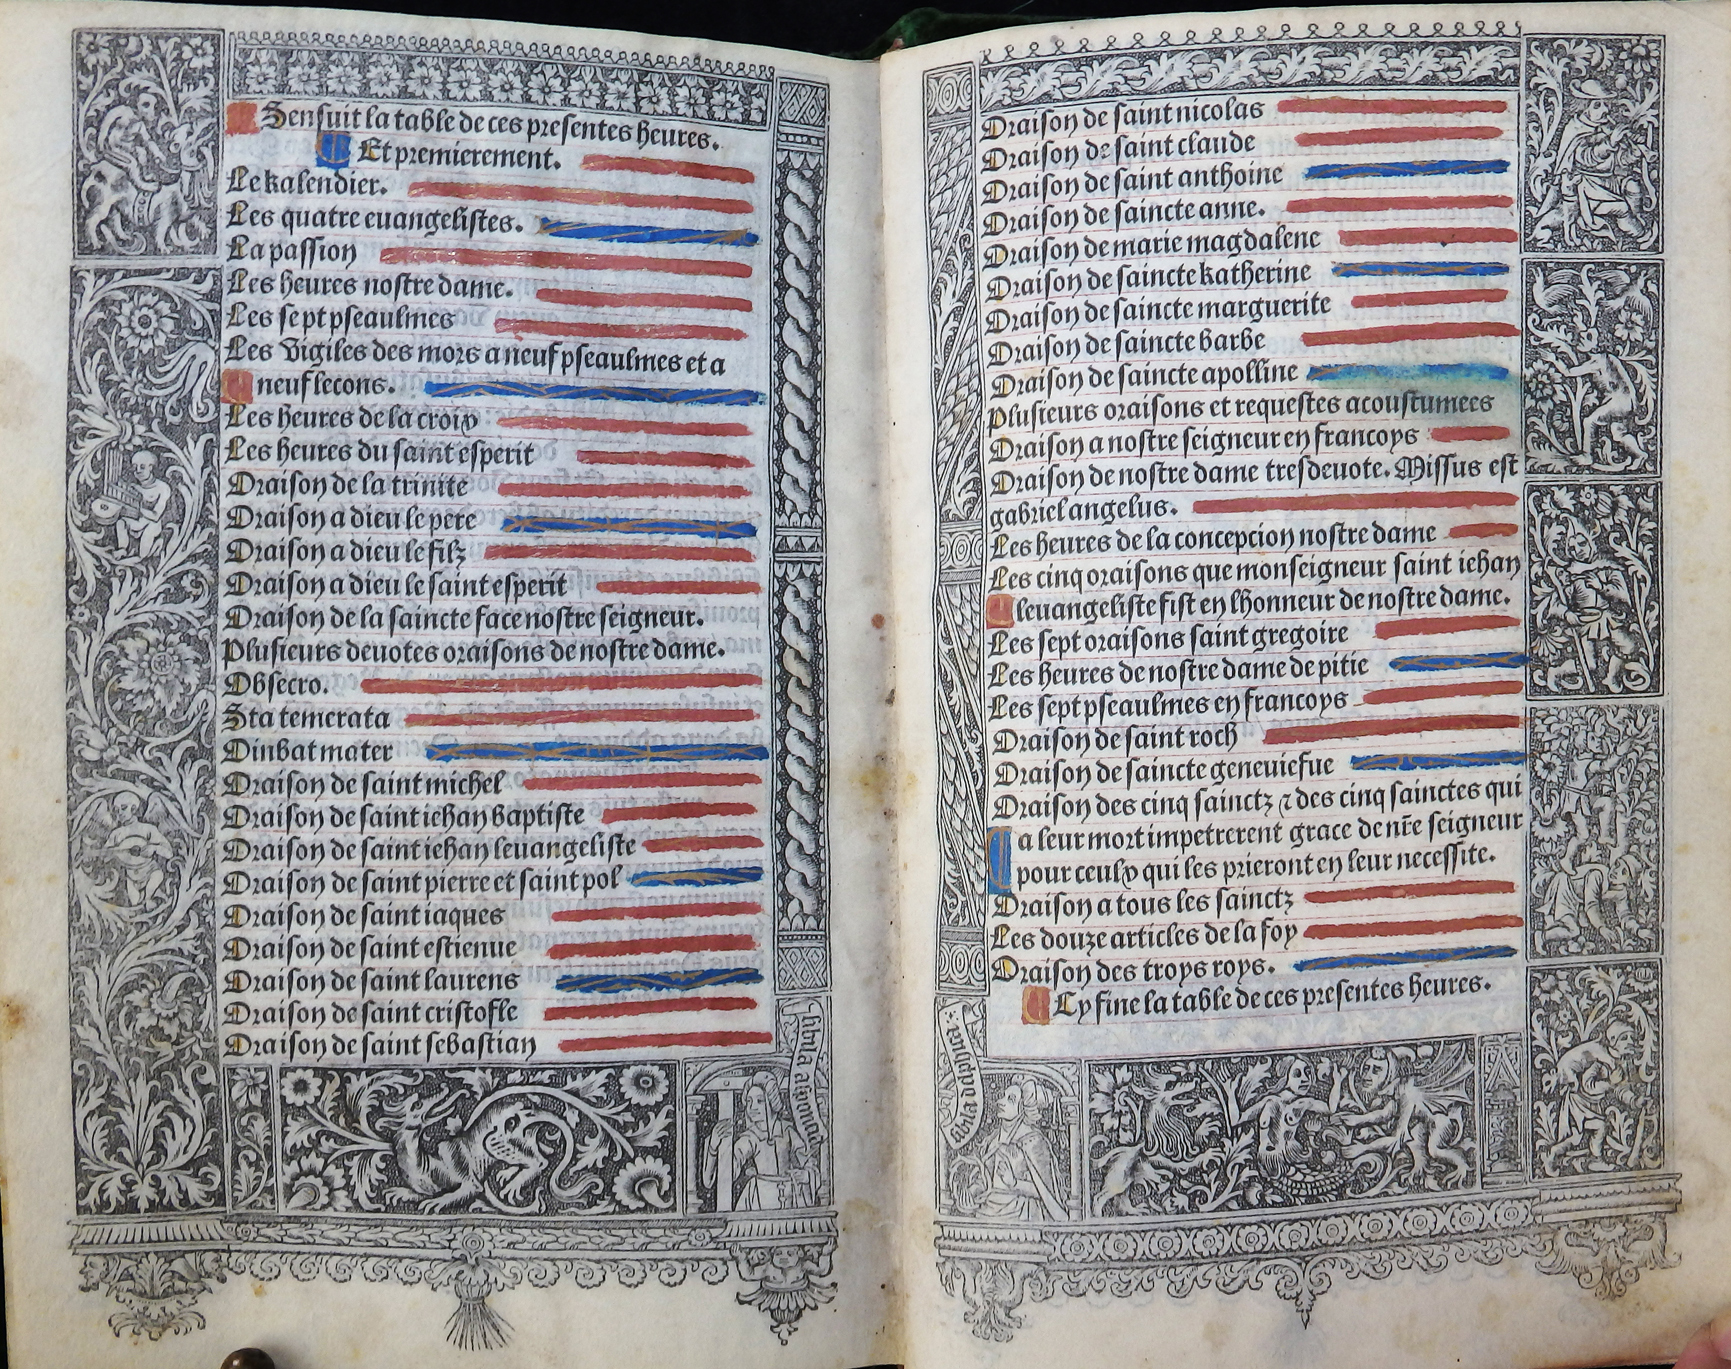 Sensuit la table de ces presentes heures.
Et premierement.
Le kalendier.
Les quatre euangelistes.
La passion
Les heures nostre dame.
Les sept pseaulmes
Les Vigiles des mors a neuf pseaulmes et a
neuf lecons.
Les heures de la croix
Les heures du saint esperit
Oraison de la trinite
Oraison a dieu le pere
Oraison a dieu le filz
Oraison a dieu le saint esperit
Oraison de la saincte face nostre seigneur.
Plusieurs deuotes oraisons de nostre dame.
Obsecro.
Sta temerata
Dinbat mater
Oraison de saint michel
Oraison de saint iehan baptiste
Oraison de saint iehan leuangeliste
Oraison de saint pierre et saint pol
Oraison de saint iaques
Oraison de saint estienne
Oraison de saint laurens
Oraison de saint cristofle
Oraison de saint sebastian
Oraison de saint nicolas
Oraison de saint claude
Oraison de saint anthoine
Oraison de saincte anne.
Oraison de marie magdalene
Oraison de saincte katherine
Oraison de saincte marguerite
Oraison de saincte barbe
Oraison de saincte apolline
Plusieurs oraisons et requestes acoustumees
Oraison a nostre seigneur en francoys
Oraison de nostre dame tresdeuote. Missus est
gabriel angelus.
Les heures de la concepcion nostre dame
Les cinq oraisons que monseigneur saint iehan
leuangeliste fist en lhonneur de nostre dame.
Les sept oraisons saint gregoire
Les heures de nostre dame de pitie
Les sept pseaulmes en francoys
Oraison de saint roch
Oraison de saincte geneuiefue
Oraison des cinq sainctz ⁊ des cinq sainctes qui
a leur mort impetrerent grace de nr̄e seigneur
pour ceulx qui les prieront en leur necessite.
Oraison a tous les sainctz
Les douze articles de la foy
Oraison des troys roys.
Cy fine la table de ces presentes heures.